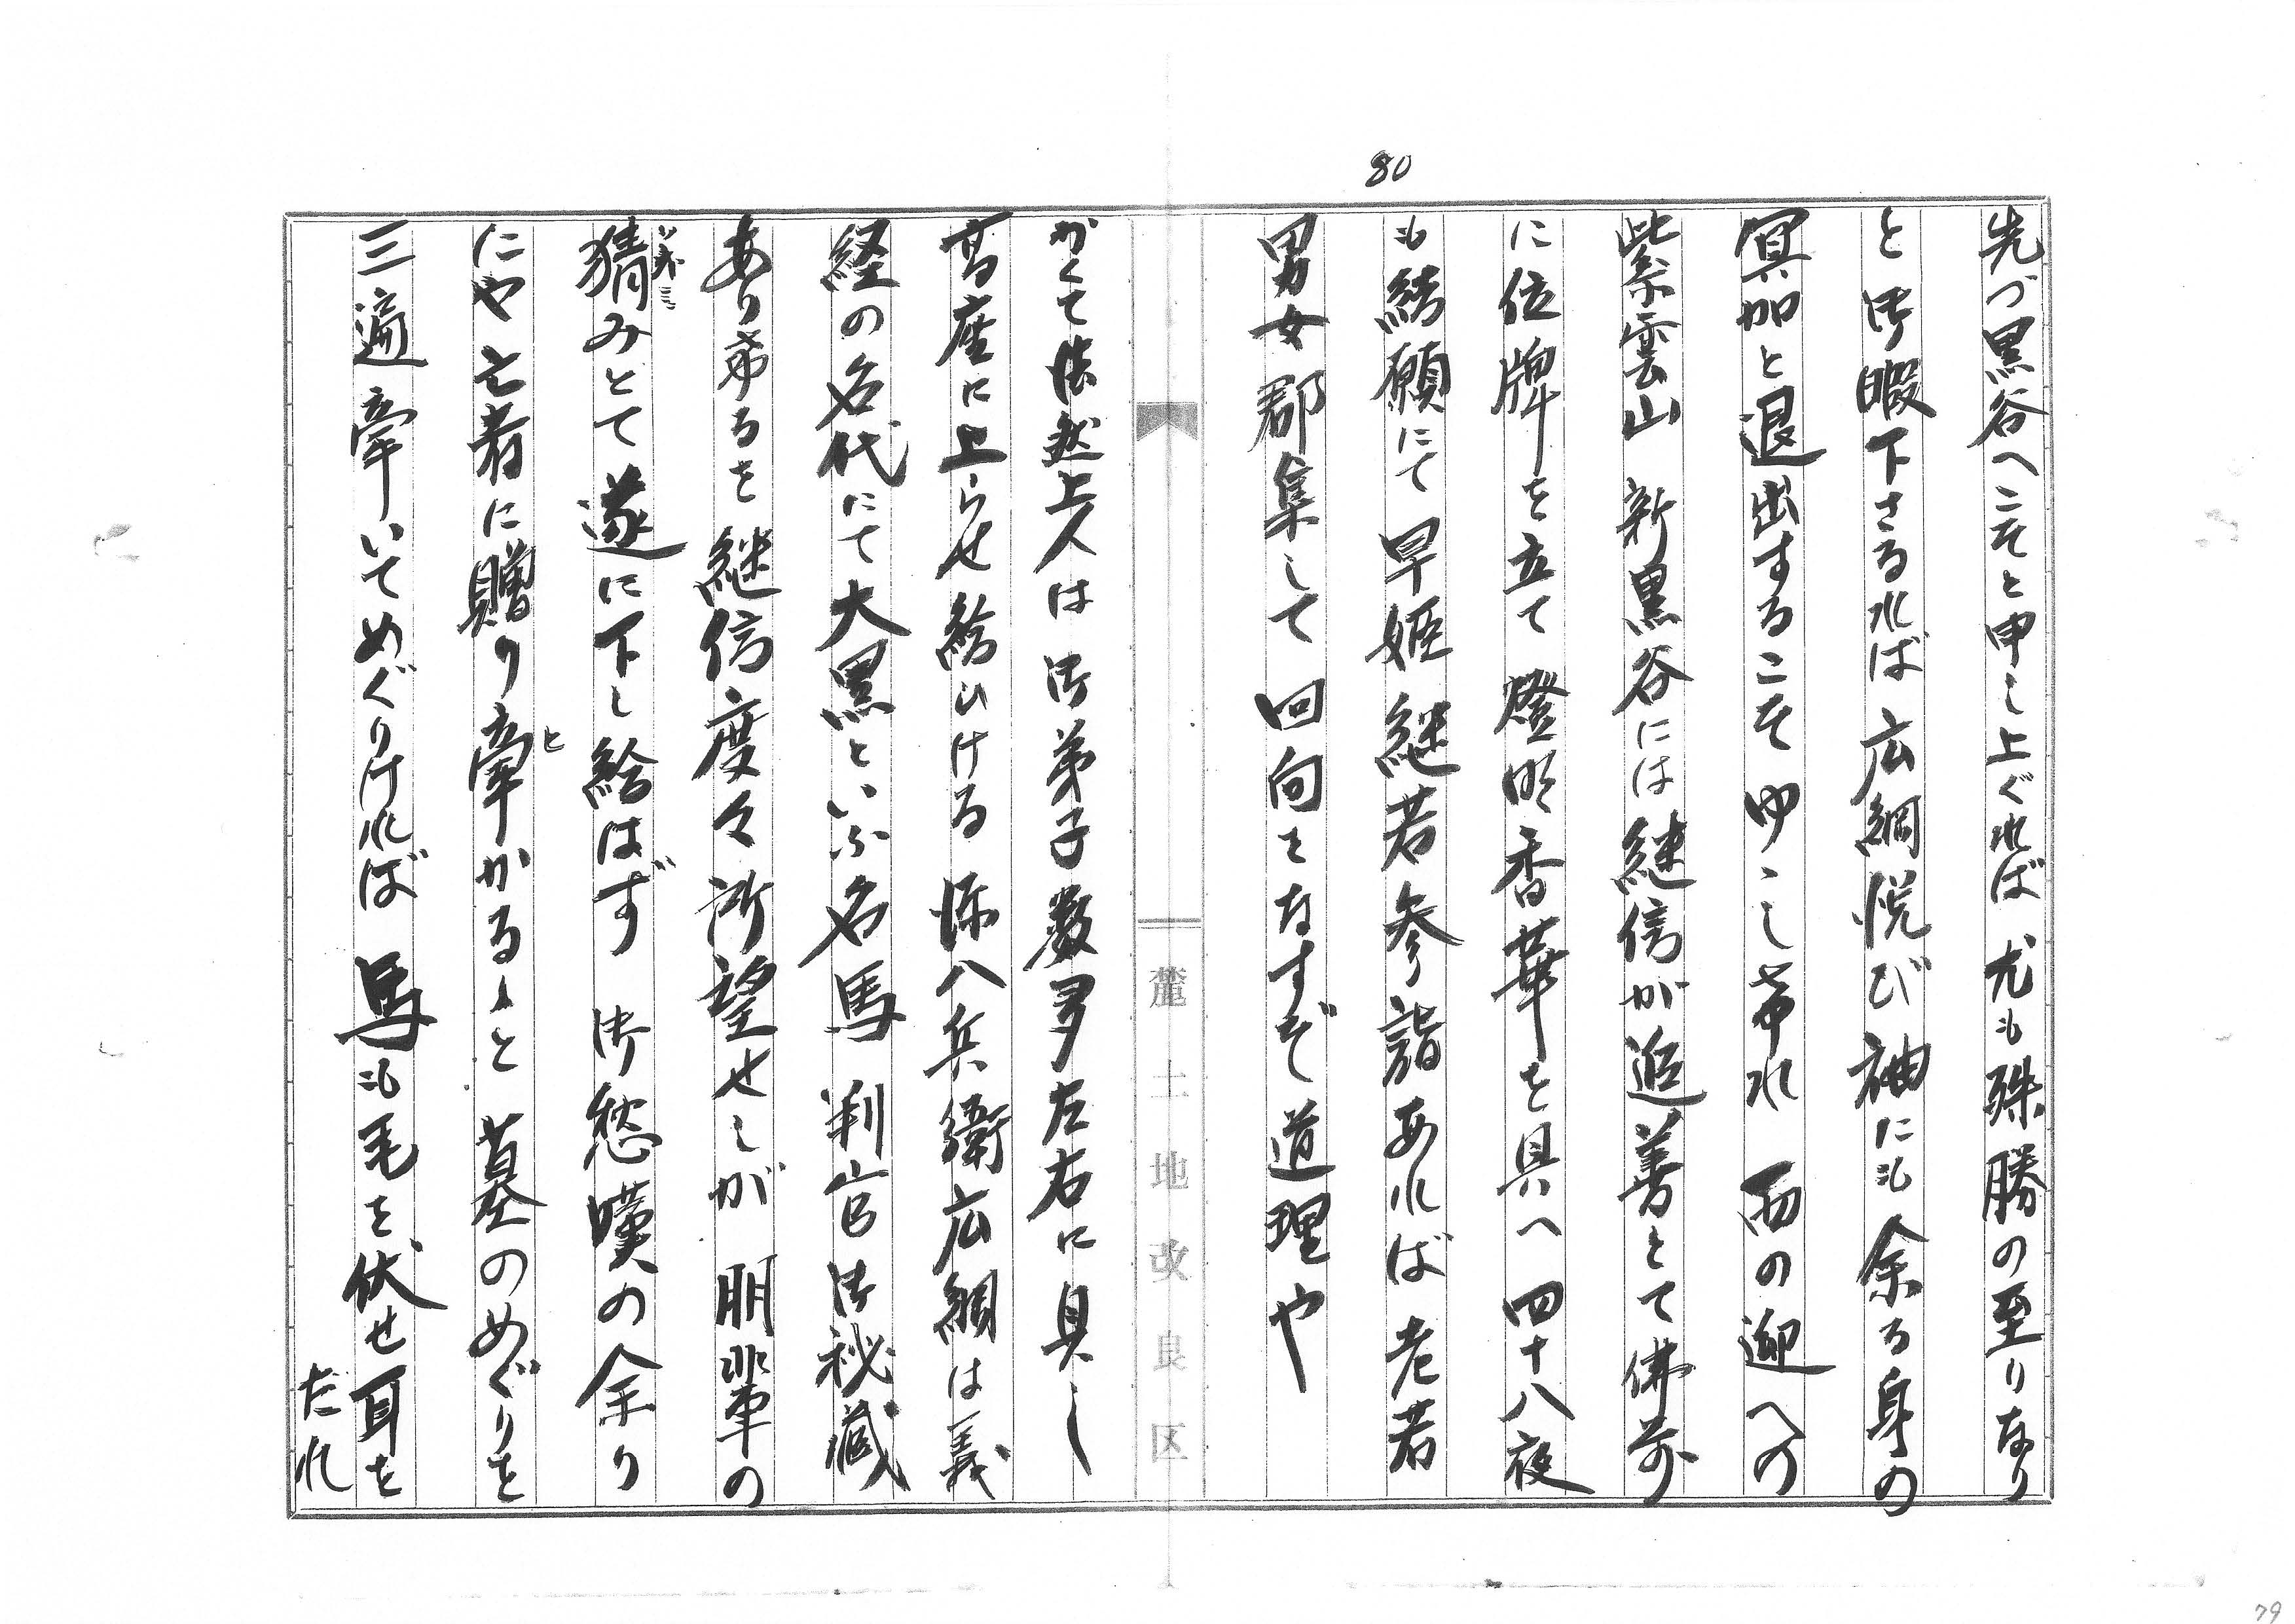 80
先づ黒谷へこそと申し上ぐれば尤も殊勝の至りなり
と御暇下さるれば広綱悦び袖にも余る身の
冥加と退出するこそゆゝしけれ 西の迎への
紫雲山 新黒谷には継信が追善とて佛前
に位牌を立て燈明香華を具へ 四十八夜
も結願にて早姫継若参詣あれば 老若
男女郡集して回向をなすぞ道理や
麓土地改良区
かくて法然上人は御弟子数多左右に具し
高座に上らせ給ひける 源八兵衛広綱は義
経の名代にて大黒といふ名馬 判官御秘蔵
ありけるを継信度々所望せしが 朋輩の
猜みとて遂に下し給はず 御愁嘆の余り
にや亡者に贈り牽かるゝと 墓のめぐりを
と
三遍牽いてめぐりければ 馬も毛を伏せ耳を
だれ
79